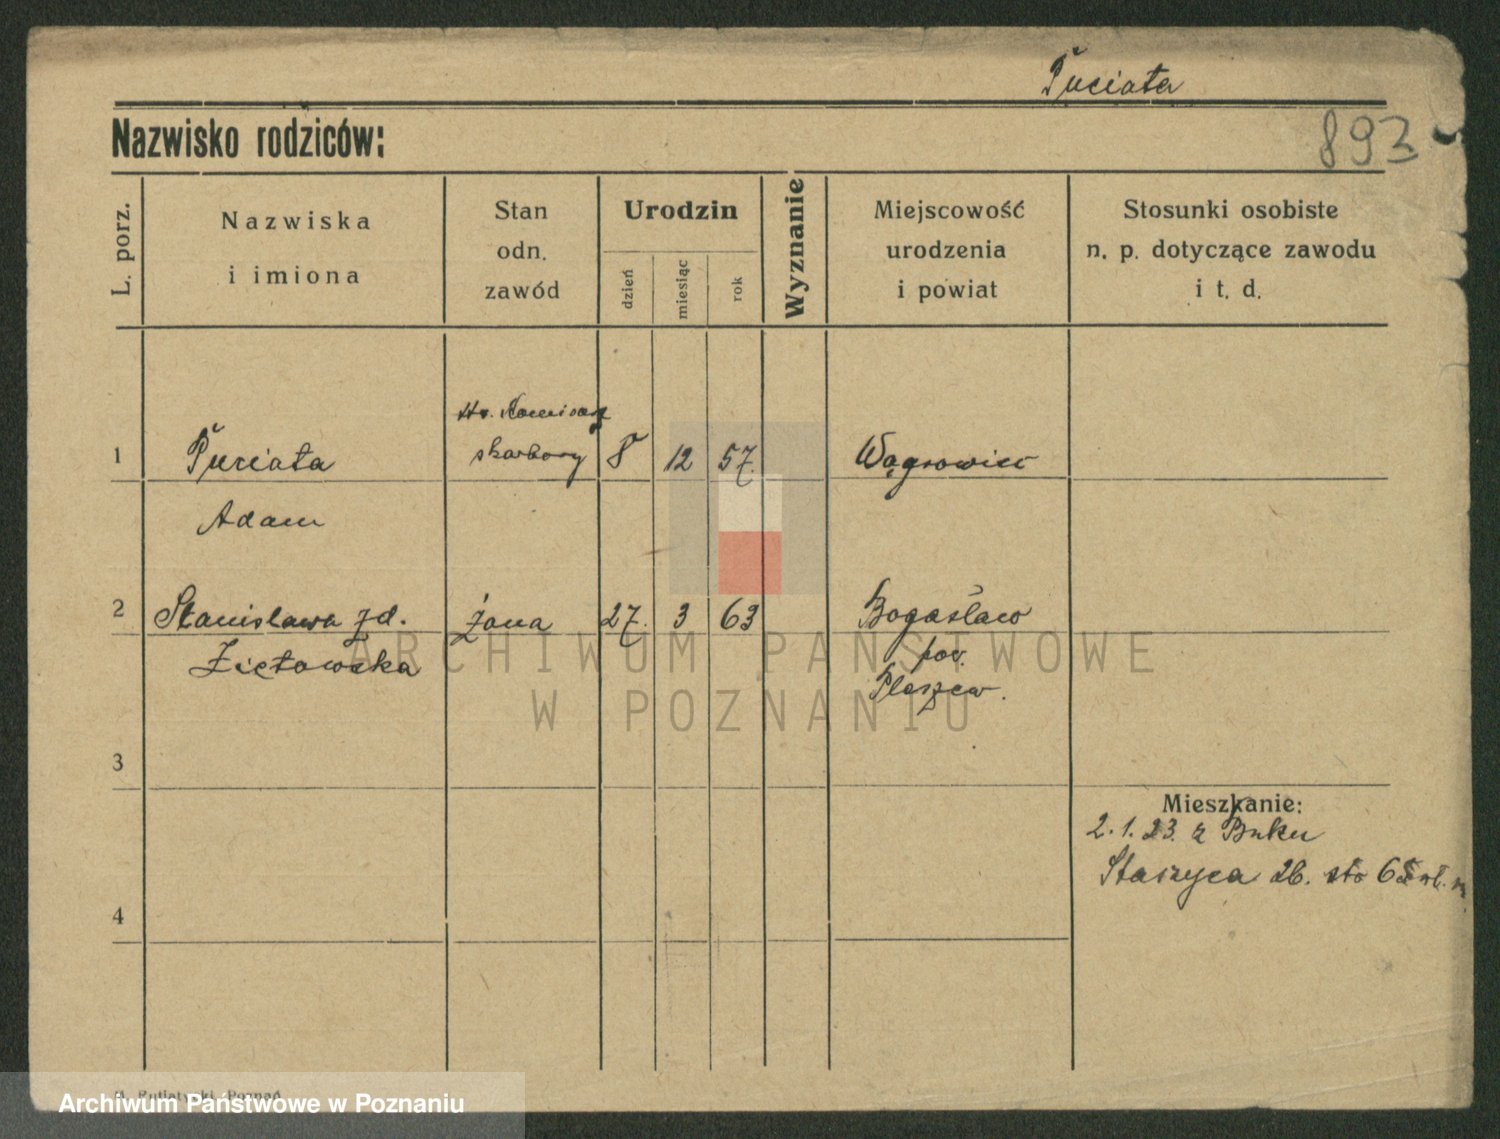 Puciata
893
Nazwisko rodziców:
L. porz.
Nazwiska
i imiona
Stan
odn.
zawód
Urodzin
dzień
miesiąc
rok
Wyznanie
Miejscowość
urodzenia
i powiat
Stosunki osobiste
n. p. dotyczące zawodu
i t. d.
1
Puciata
Adam
skarbowy
8
12
57.
Wągrowiec
2
Stanisława zd.
Zietowska
żona
27.
3
63
Bogusław
pow.
Pleszew.
3
Mieszkanie:
2.1.23. z Buku
Staszyca 26.
4
ARCHIWUM PAŃSTWOWE
W POZNANIU
Archiwum Państwowe w Poznaniu